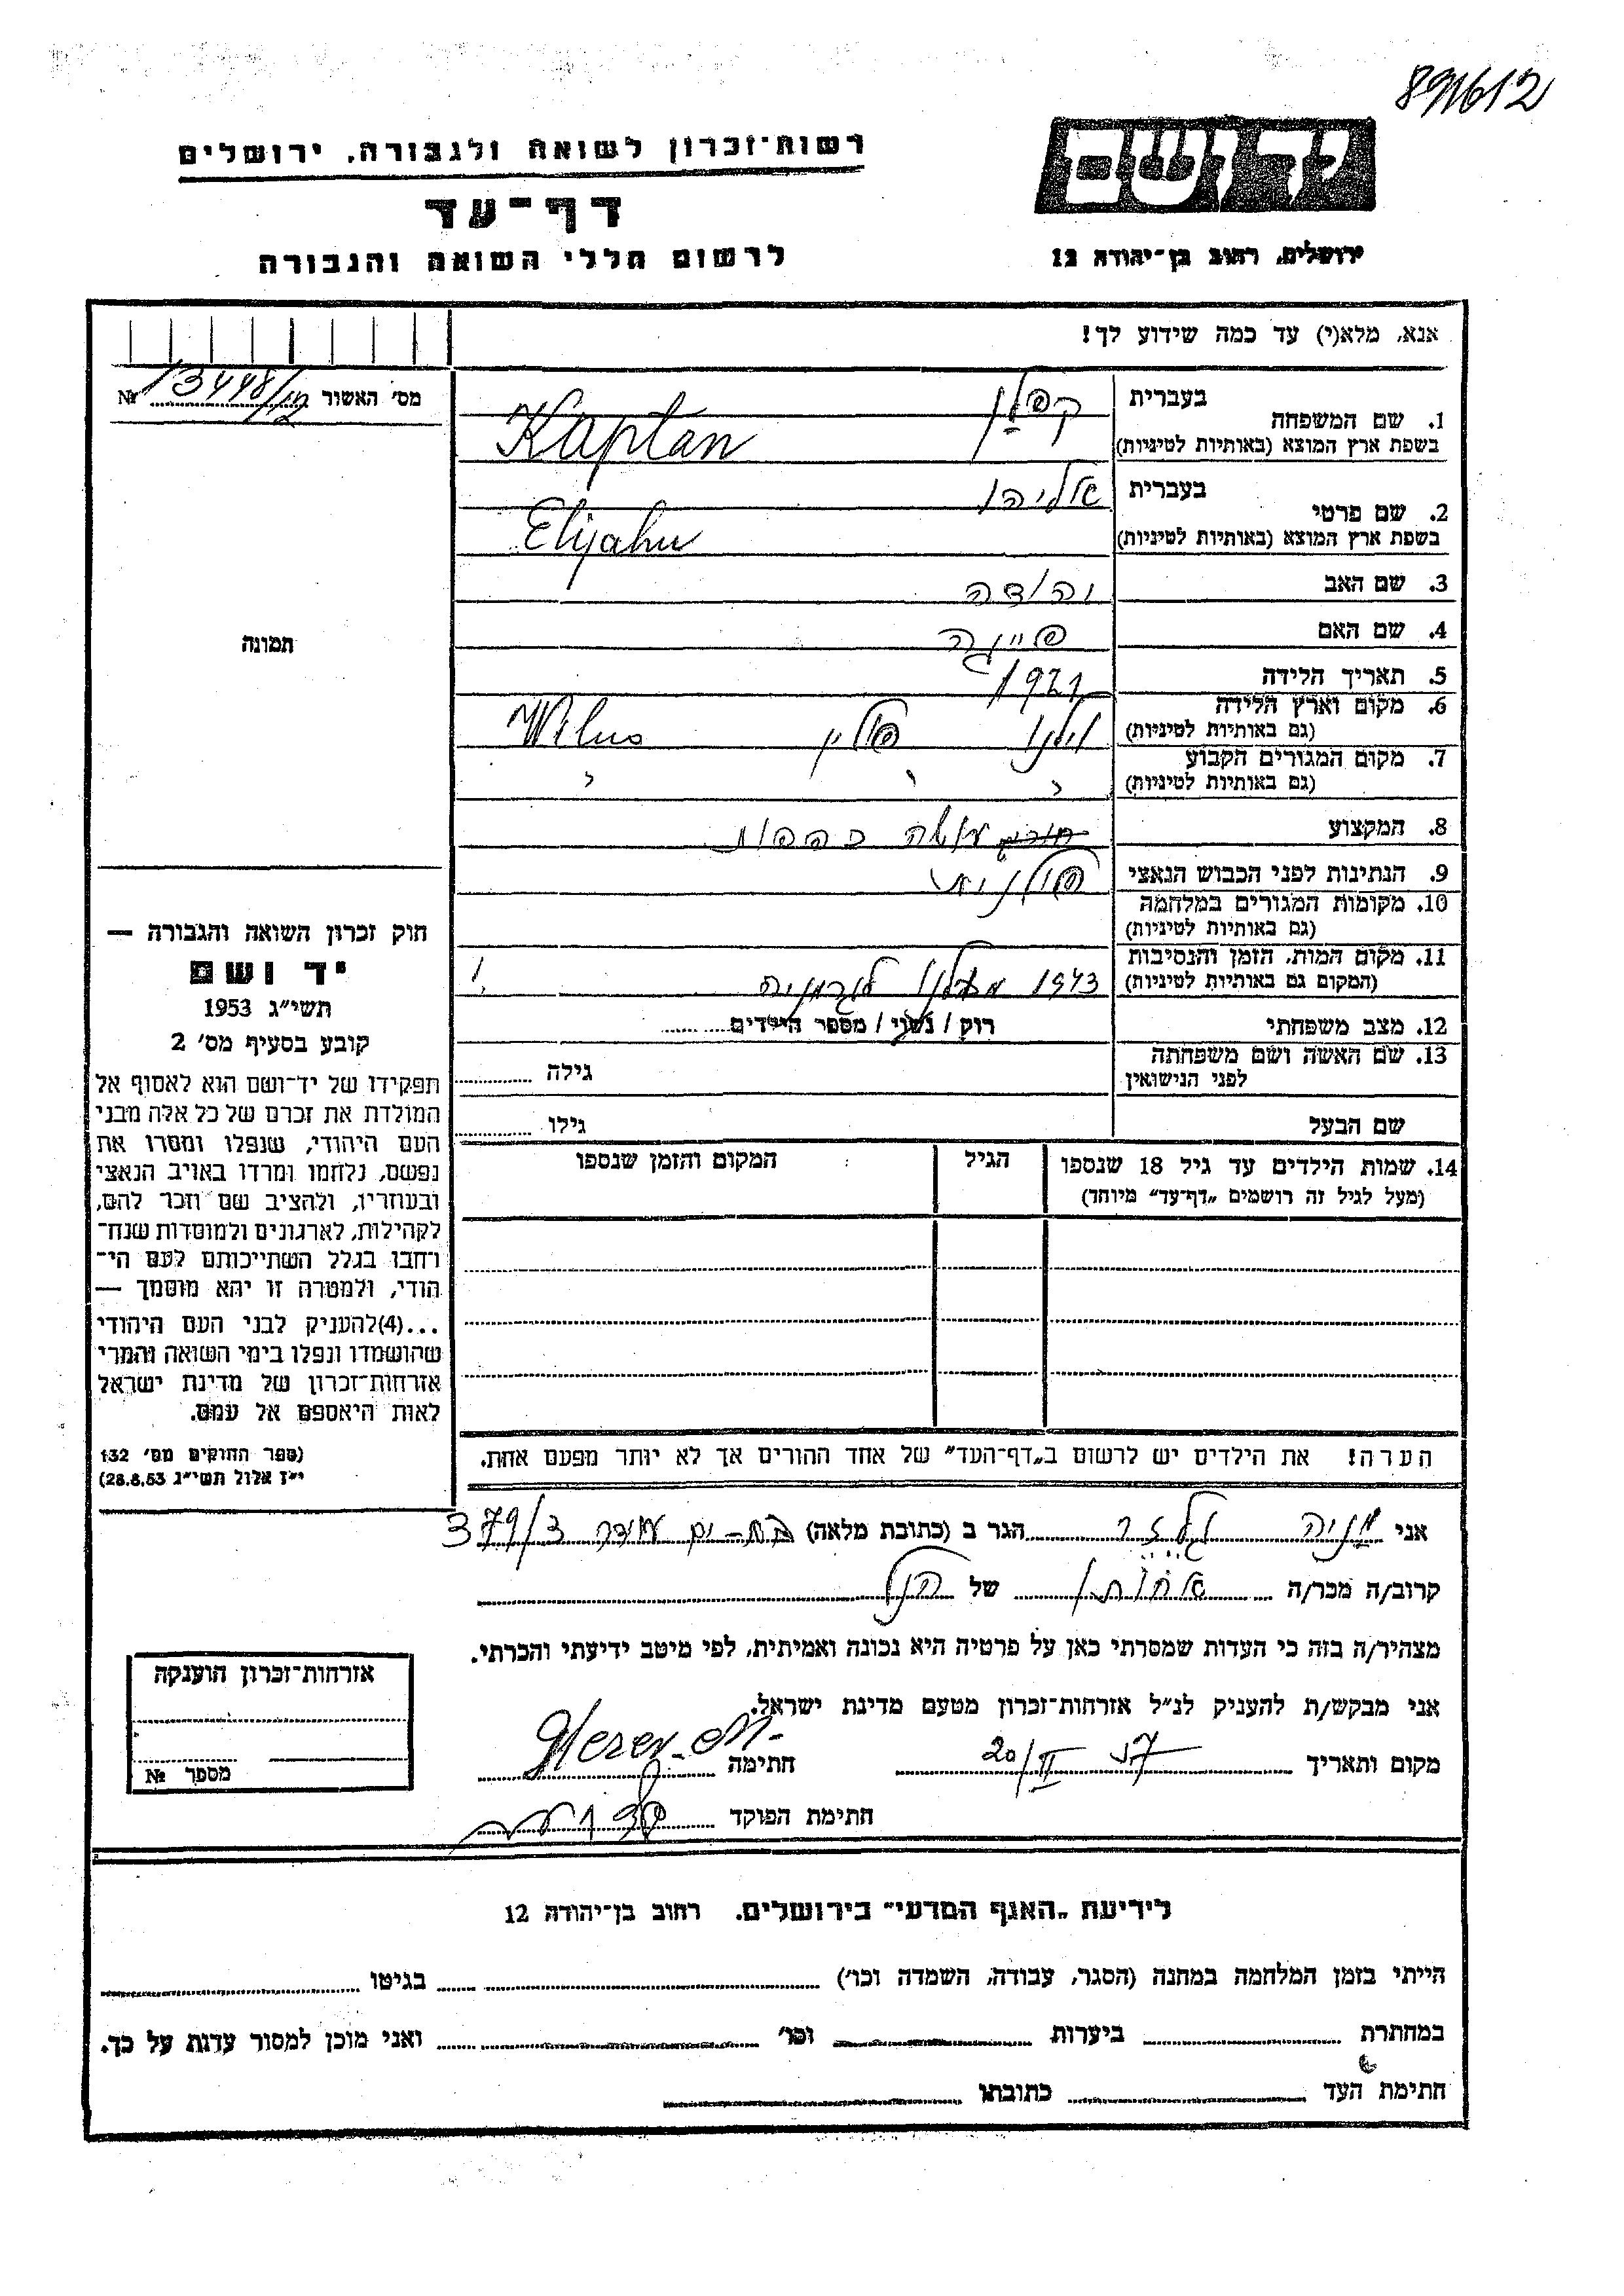 891612
רשות־זכרון לשואה ולגבורה, ירושלים
דף־עד
לרשום חללי השואה והגבורה
יד ושם
ירושלים, רחוב בן־יהודה 12
אנא, מלא(י) עד כמה שידוע לך!
מס' האשור № 13448/12
1. שם המשפחה בעברית קפלן
בשפת ארץ המוצא (באותיות לטיניות) Kaplan
2. שם פרטי בעברית אליהו
בשפת ארץ המוצא (באותיות לטיניות) Elijahu
3. שם האב יהודה
4. שם האם פייגה
5. תאריך הלידה 1921
6. מקום וארץ הלידה
(גם באותיות לטיניות) וילנו פולין Wilno
7. מקום המגורים הקבוע
(גם באותיות לטיניות) " " "
8. המקצוע עושה כפפות
9. הנתינות לפני הכבוש הנאצי פולנית
10. מקומות המגורים במלחמה
(גם באותיות לטיניות)
11. מקום המות, הזמן והנסיבות
(המקום גם באותיות לטיניות) 1943
12. מצב משפחתי רוק / נשוי / מספר הילדים
13. שם האשה ושם משפחתה
לפני הנישואין גילה
שם הבעל גילו
14. שמות הילדים עד גיל 18 שנספו הגיל המקום והזמן שנספו
(מעל לגיל זה רושמים „דף־עד" מיוחד)
הערה! את הילדים יש לרשום ב„דף־העד" של אחד ההורים אך לא יותר מפעם אחת.
תמונה
חוק זכרון השואה והגבורה —
יד ושם
תשי"ג 1953
קובע בסעיף מס' 2
תפקידו של יד־ושם הוא לאסוף אל
המולדת את זכרם של כל אלה מבני
העם היהודי, שנפלו ומסרו את
נפשם, נלחמו ומרדו באויב הנאצי
ובעוזריו, ולהציב שם וזכר להם,
לקהילות, לארגונים ולמוסדות שנח־
רחבו בגלל השתייכותם לעם הי־
הודי, ולמטרה זו יהא מוסמך —
...(4)להעניק לבני העם היהודי
שהושמדו ונפלו בימי השואה והמרי
אזרחות־זכרון של מדינת ישראל
לאות היאספם אל עמם.
(ספר החוקים מס' 132
י"ז אלול תשי"ג 28.8.53)
אני מניה גלזר הגר ב (כתובת מלאה) בת-ים עמידר 379/3
קרוב/ה מכר/ה אחותו של הנ"ל
מצהיר/ה בזה כי העדות שמסרתי כאן על פרטיה היא נכונה ואמיתית, לפי מיטב ידיעתי והכרתי.
אני מבקש/ת להעניק לנ"ל אזרחות־זכרון מטעם מדינת ישראל.
מקום ותאריך 20/II 57 חתימה
חתימת הפוקד
אזרחות־זכרון הוענקה
מספר №
לידיעת „האגף המדעי" בירושלים. רחוב בן־יהודה 12
הייתי בזמן המלחמה במחנה (הסגר, עבודה, השמדה וכו') בגיטו
במחתרת ביערות וכו' ואני מוכן למסור עדות על כך.
חתימת העד כתובתו